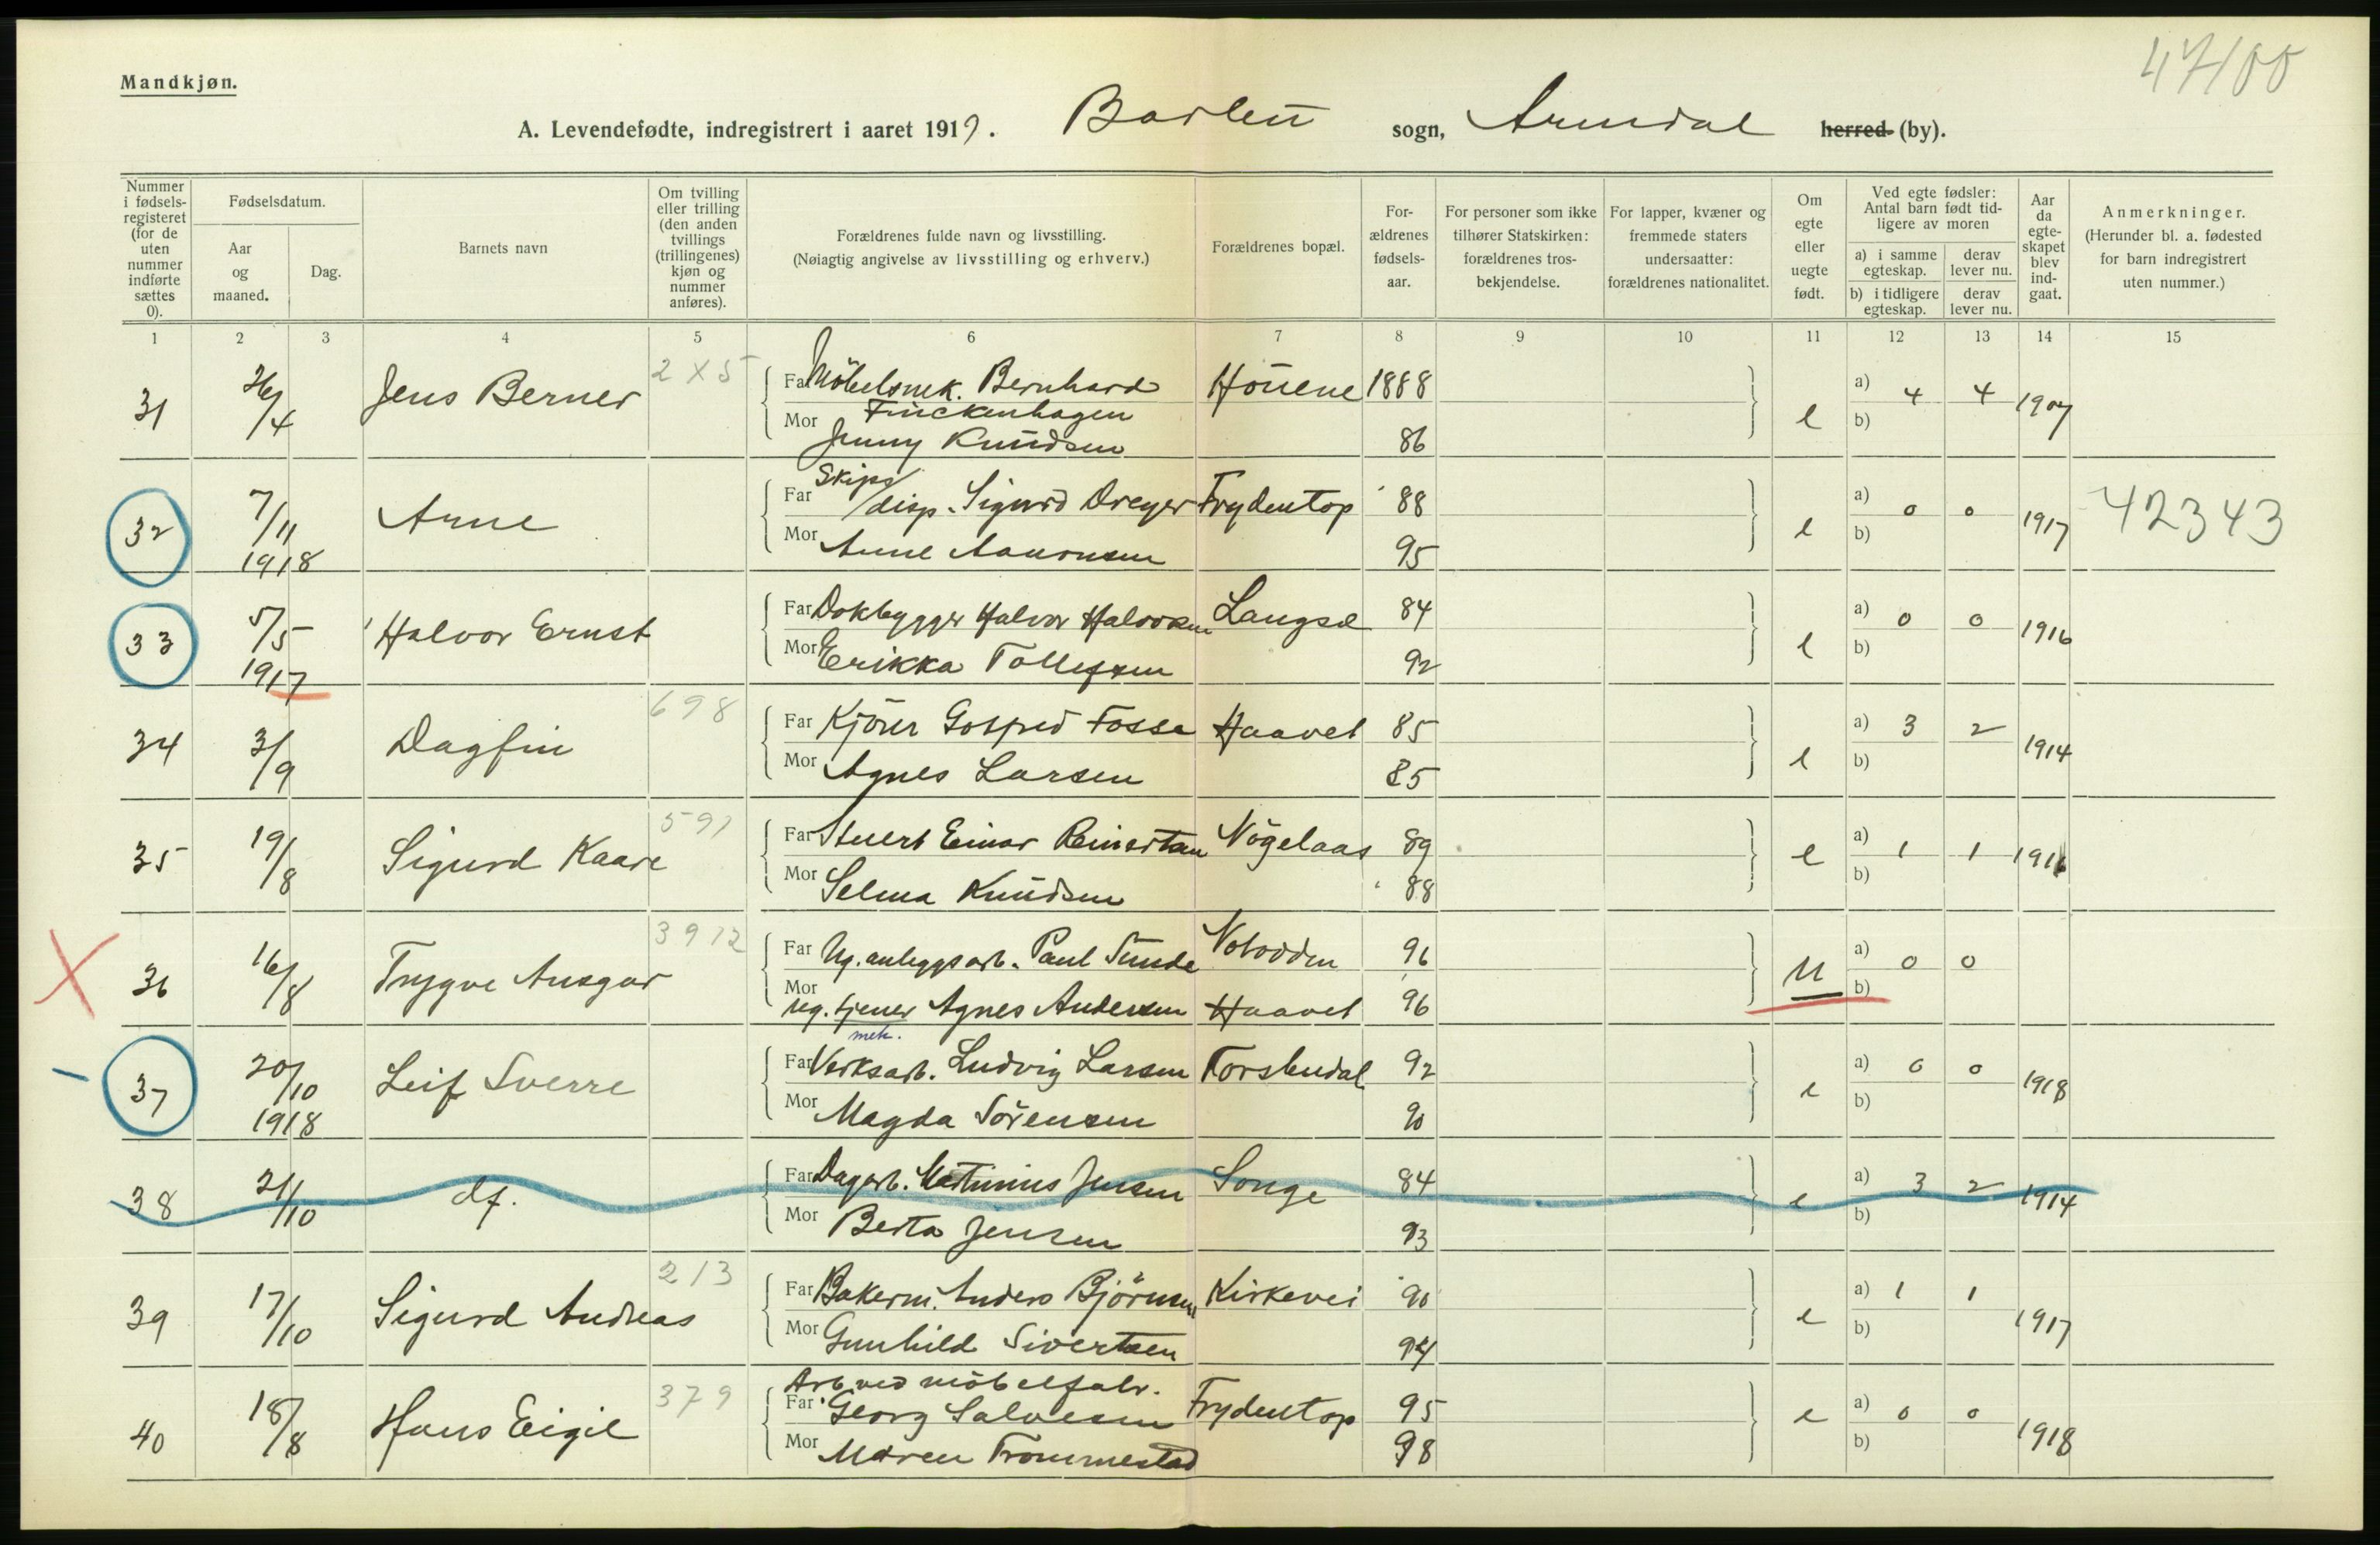 Mandkjøn.
47/00
A. Levendefødte, indregistrert i aaret 1919. Barbu sogn, Arendal herred (by).
Nummer i fødsels-registeret (for de uten nummer indførte sættes 0).
Fødselsdatum.
Aar og maaned.
Dag.
Barnets navn
Om tvilling eller trilling (den anden tvillings (trillingenes) kjøn og nummer anføres).
Forældrenes fulde navn og livsstilling.
(Nøiagtig angivelse av livsstilling og erhverv.)
Forældrenes bopæl.
For-ældrenes fødsels-aar.
For personer som ikke tilhører Statskirken: forældrenes tros-bekjendelse.
For lapper, kvæner og fremmede staters undersaatter: forældrenes nationalitet.
Om egte eller uegte født.
Ved egte fødsler: Antal barn født tid-ligere av moren
a) i samme egteskap.
derav lever nu.
b) i tidligere egteskap.
derav lever nu.
Aar da egte-skapet blev ind-gaat.
Anmerkninger.
(Herunder bl. a. fødested for barn indregistrert uten nummer.)
1 2 3 4 5 6 7 8 9 10 11 12 13 14 15
31 26/4 Jens Berner 2 X 5 Far Möbelsnek. Bernhard Finckenhagen Houene 1888 e a) 4 4 1907
Mor Jenny Knudsen 86 b)
32 7/11 1918 Arne Far Skips/disp. Sigurd Dreyer Frydentop 88 e a) 0 0 1917 42343
Mor Anne Aanonsen 95 b)
33 5/5 1917 Halvor Ernst Far Dokbygger Halvor Halvorsen Langsæ 84 e a) 0 0 1916
Mor Erikka Tollefsen 92 b)
34 3/9 Dagfin 698 Far Kjörer Gotfred Fosse Haavet 85 e a) 3 2 1914
Mor Agnes Larsen 85 b)
35 19/8 Sigurd Kaare 591 Far Stuert Einar Reinertsen Nögelaas 89 e a) 1 1 1916
Mor Selma Knudsen 88 b)
36 16/8 Trygve Ansgar 3912 Far Ug. anleggsarb. Paul Sunde Notodden 96 u a) 0 0
Mor ug. tjener Agnes Andersen Haavet 96 b)
37 20/10 1918 Leif Sverre Far mek. Verksarb. Ludvig Larsen Torsbudal 92 e a) 0 0 1918
Mor Magda Sörensen 90 b)
38 21/10 df. Far Dagarb. Mathinius Jensen Songe 84 e a) 3 2 1914
Mor Berta Jensen 93 b)
39 17/10 Sigurd Andreas 213 Far Bakerm. Anders Björnsen Kirkevei 90 e a) 1 1 1917
Mor Gunhild Sivertsen 94 b)
40 18/8 Hans Eigil 379 Far Arb. ved möbelfabr. Georg Salvesen Frydentop 95 e a) 0 0 1918
Mor Maren Trommestad 98 b)